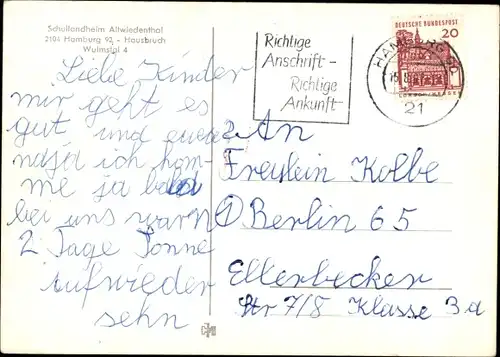 Schullandheim Allwiedenthal
2104 Hamburg 92 - Hausbruch
Wulmstal 4
Liebe Kinder
mir geht es
gut und
ich kom-
me ja bald
bei uns waren
2 Tage Sonne
Aufwieder
sehn
Richtige
Anschrift -
Richtige
Ankunft
HAMBURG 90
21
DEUTSCHE BUNDESPOST
20
An
Freulein Kolbe
① Berlin 65
Ellerbecker
Str 7/8 Klasse 3a